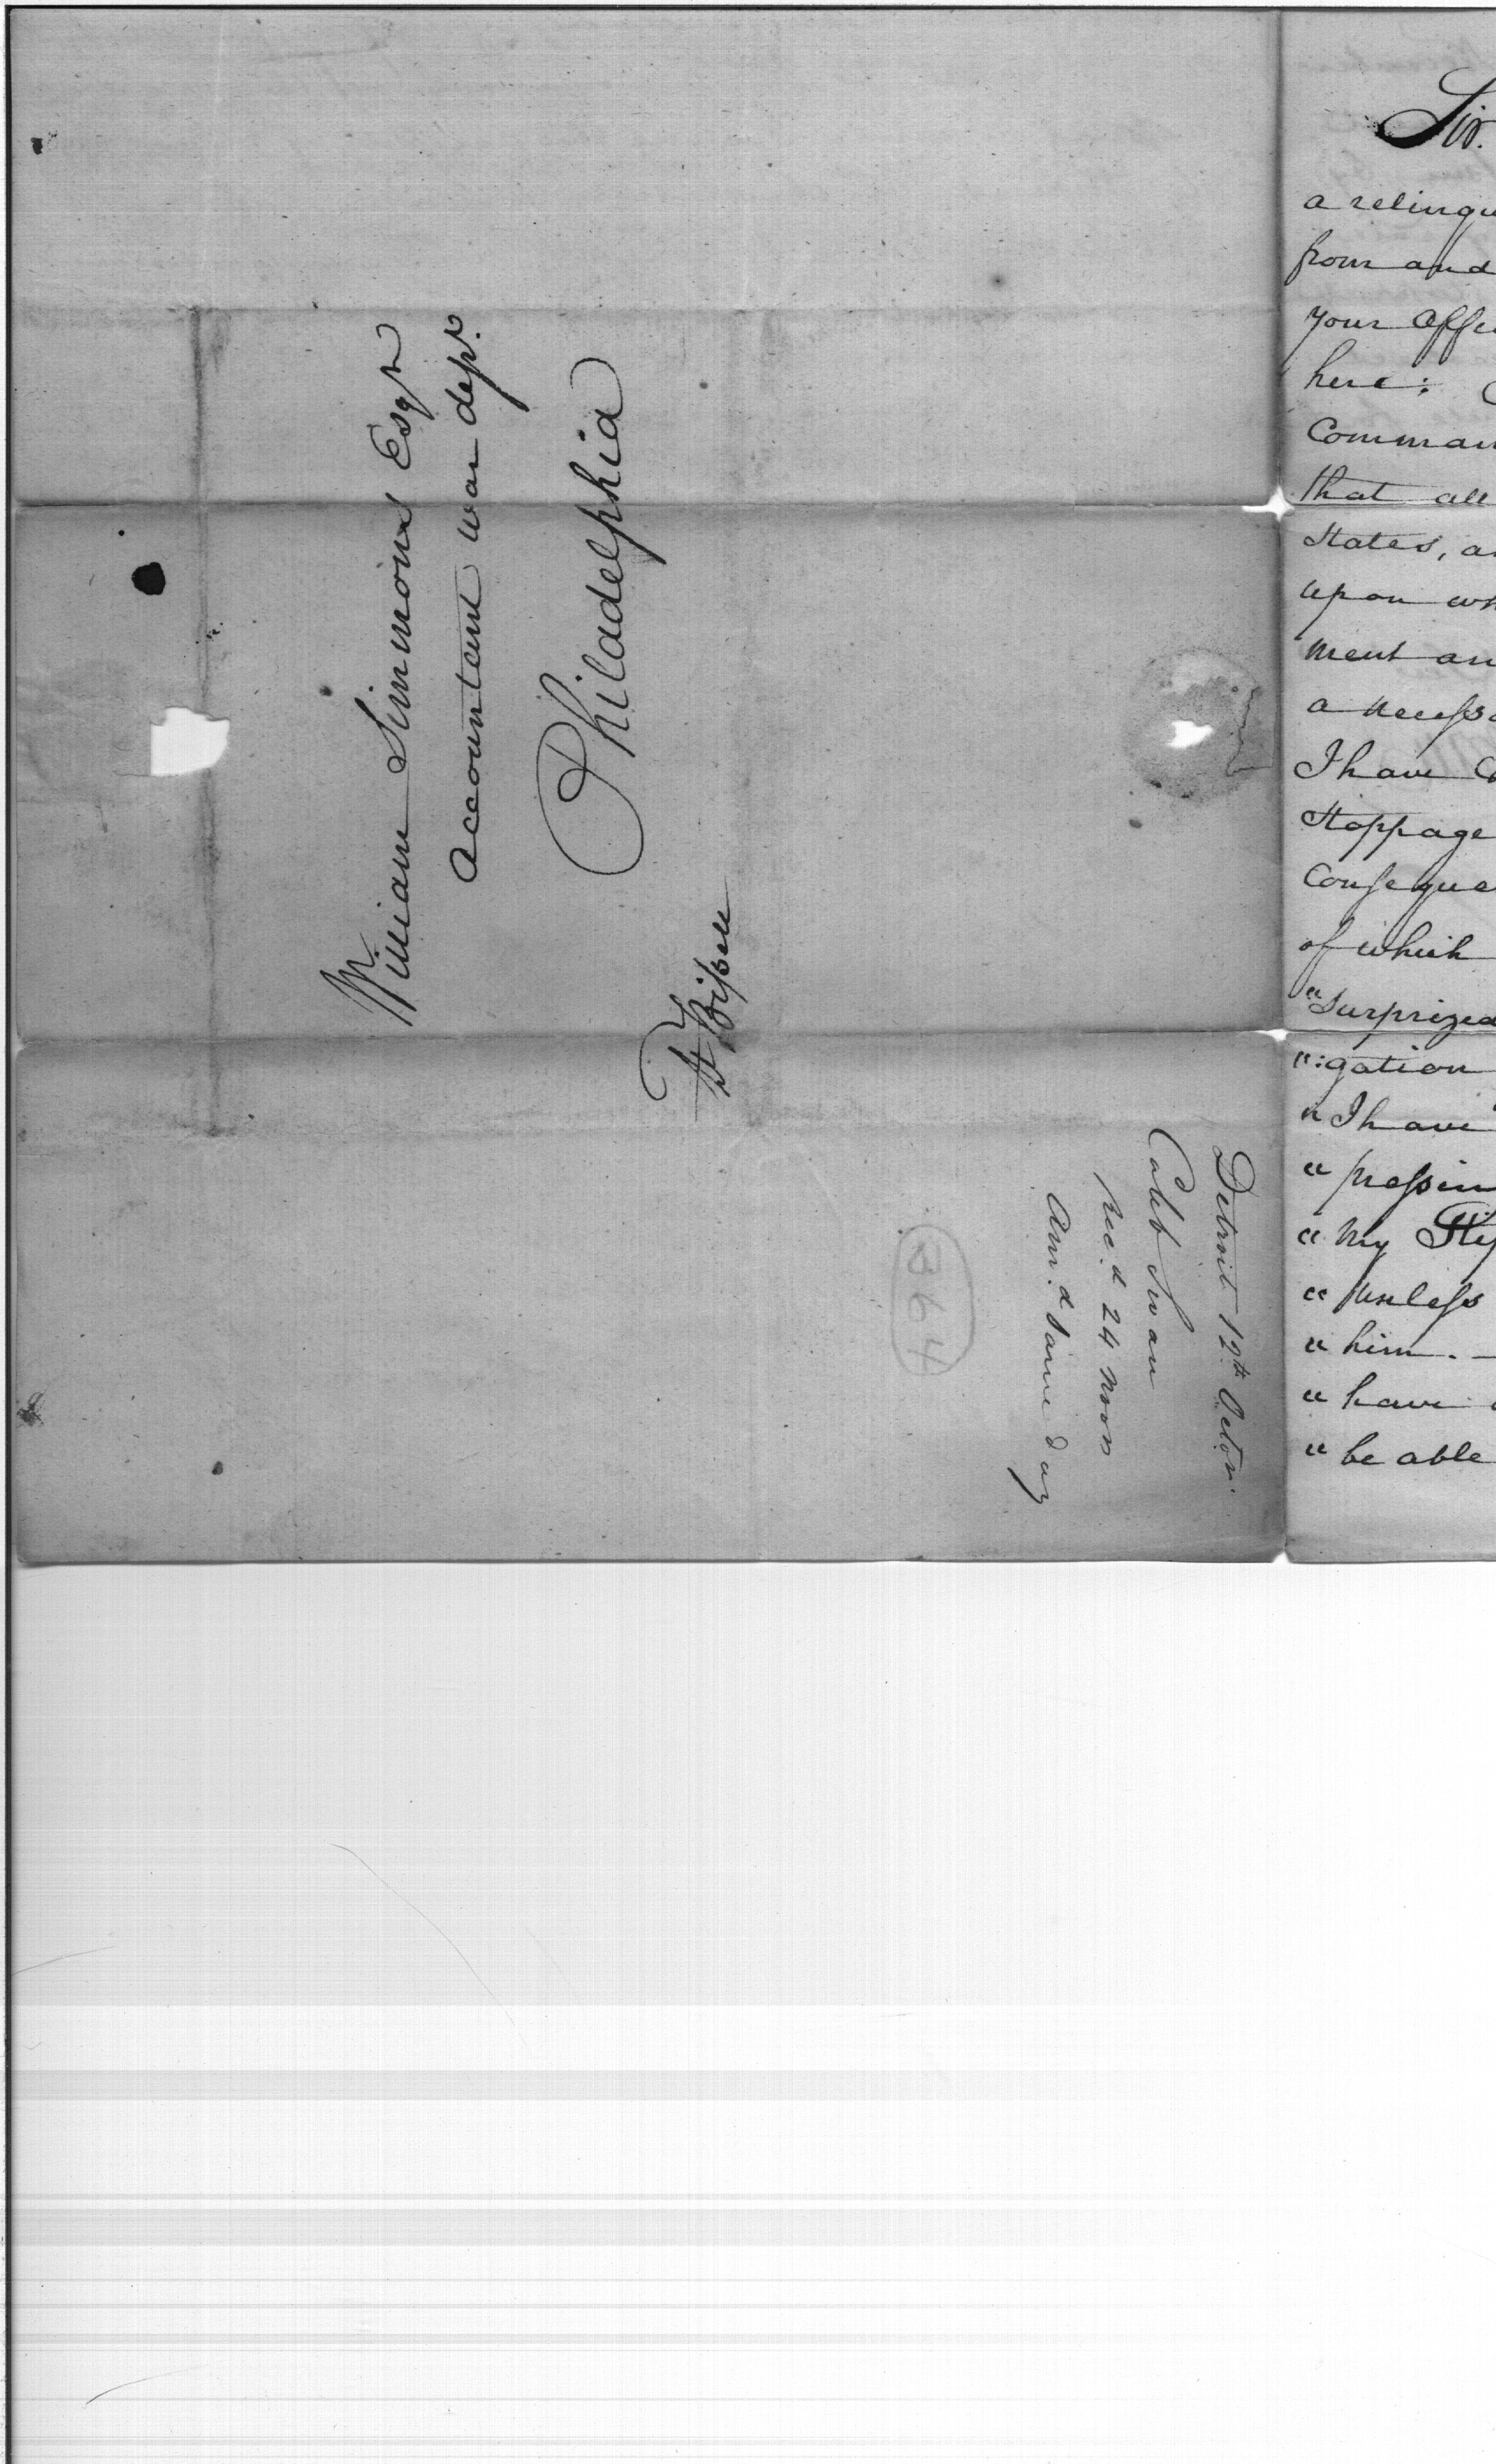 William Simmons Esqr
Accountant war dept.
Philadelphia
Detroit 12th Octor.
Caleb Swan
Rec.d 24 Novr
Ans.d Same day
364
Sir.
a relinqu
from and
your Offi
here:
Comman
that all
States, a
upon wh
ment an
a necessa
I have
Stoppage
Conseque
of which
"Surprized
":gation
"I have
"pressin
"My
"unless
"him. -
"have
"be able